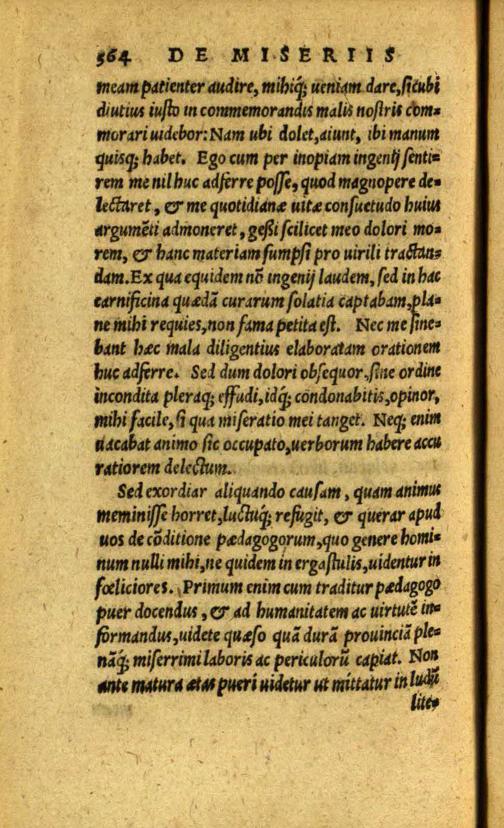 364 DE MISERIIS
meam patienter audire, mihiq́; ueniam dare, sicubi
diutius iusto in commemorandis malis nostris com=
morari uidebor: Nam ubi dolet, aiunt, ibi manum
quisq; habet. Ego cum per inopiam ingenij senti=
rem me nil huc adferre posse, quod magnopere de=
lectaret, & me quotidianæ uitæ consuetudo huius
argumẽti admoneret, geßi scilicet meo dolori mo=
rem, & hanc materiam sumpsi pro uirili tractan=
dam. Ex qua equidem nõ ingenij laudem, sed in hac
carnificina quædã curarum solatia captabam, pla=
ne mihi requies, non fama petita est. Nec me sine=
bant hæc mala diligentius elaboratam orationem
huc adferre. Sed dum dolori obsequor, sine ordine
incondita pleraq; effudi, idq́; condonabitis, opinor,
mihi facile, si qua miseratio mei tanget. Neq; enim
uacabat animo sic occupato, uerborum habere accu
ratiorem delectum.
Sed exordiar aliquando causam, quam animus
meminisse horret, luctuq́; refugit, & querar apud
uos de cõditione pædagogorum, quo genere homi=
num nulli mihi, ne quidem in ergastulis, uidentur in
fœliciores. Primum enim cum traditur pædagogo
puer docendus, & ad humanitatem ac uirtutẽ in=
formandus, uidete quæso quã durã prouinciã ple=
nãq́; miserrimi laboris ac periculorũ capiat. Non
ante matura ætas pueri uidetur ut mittatur in ludũ
lite=